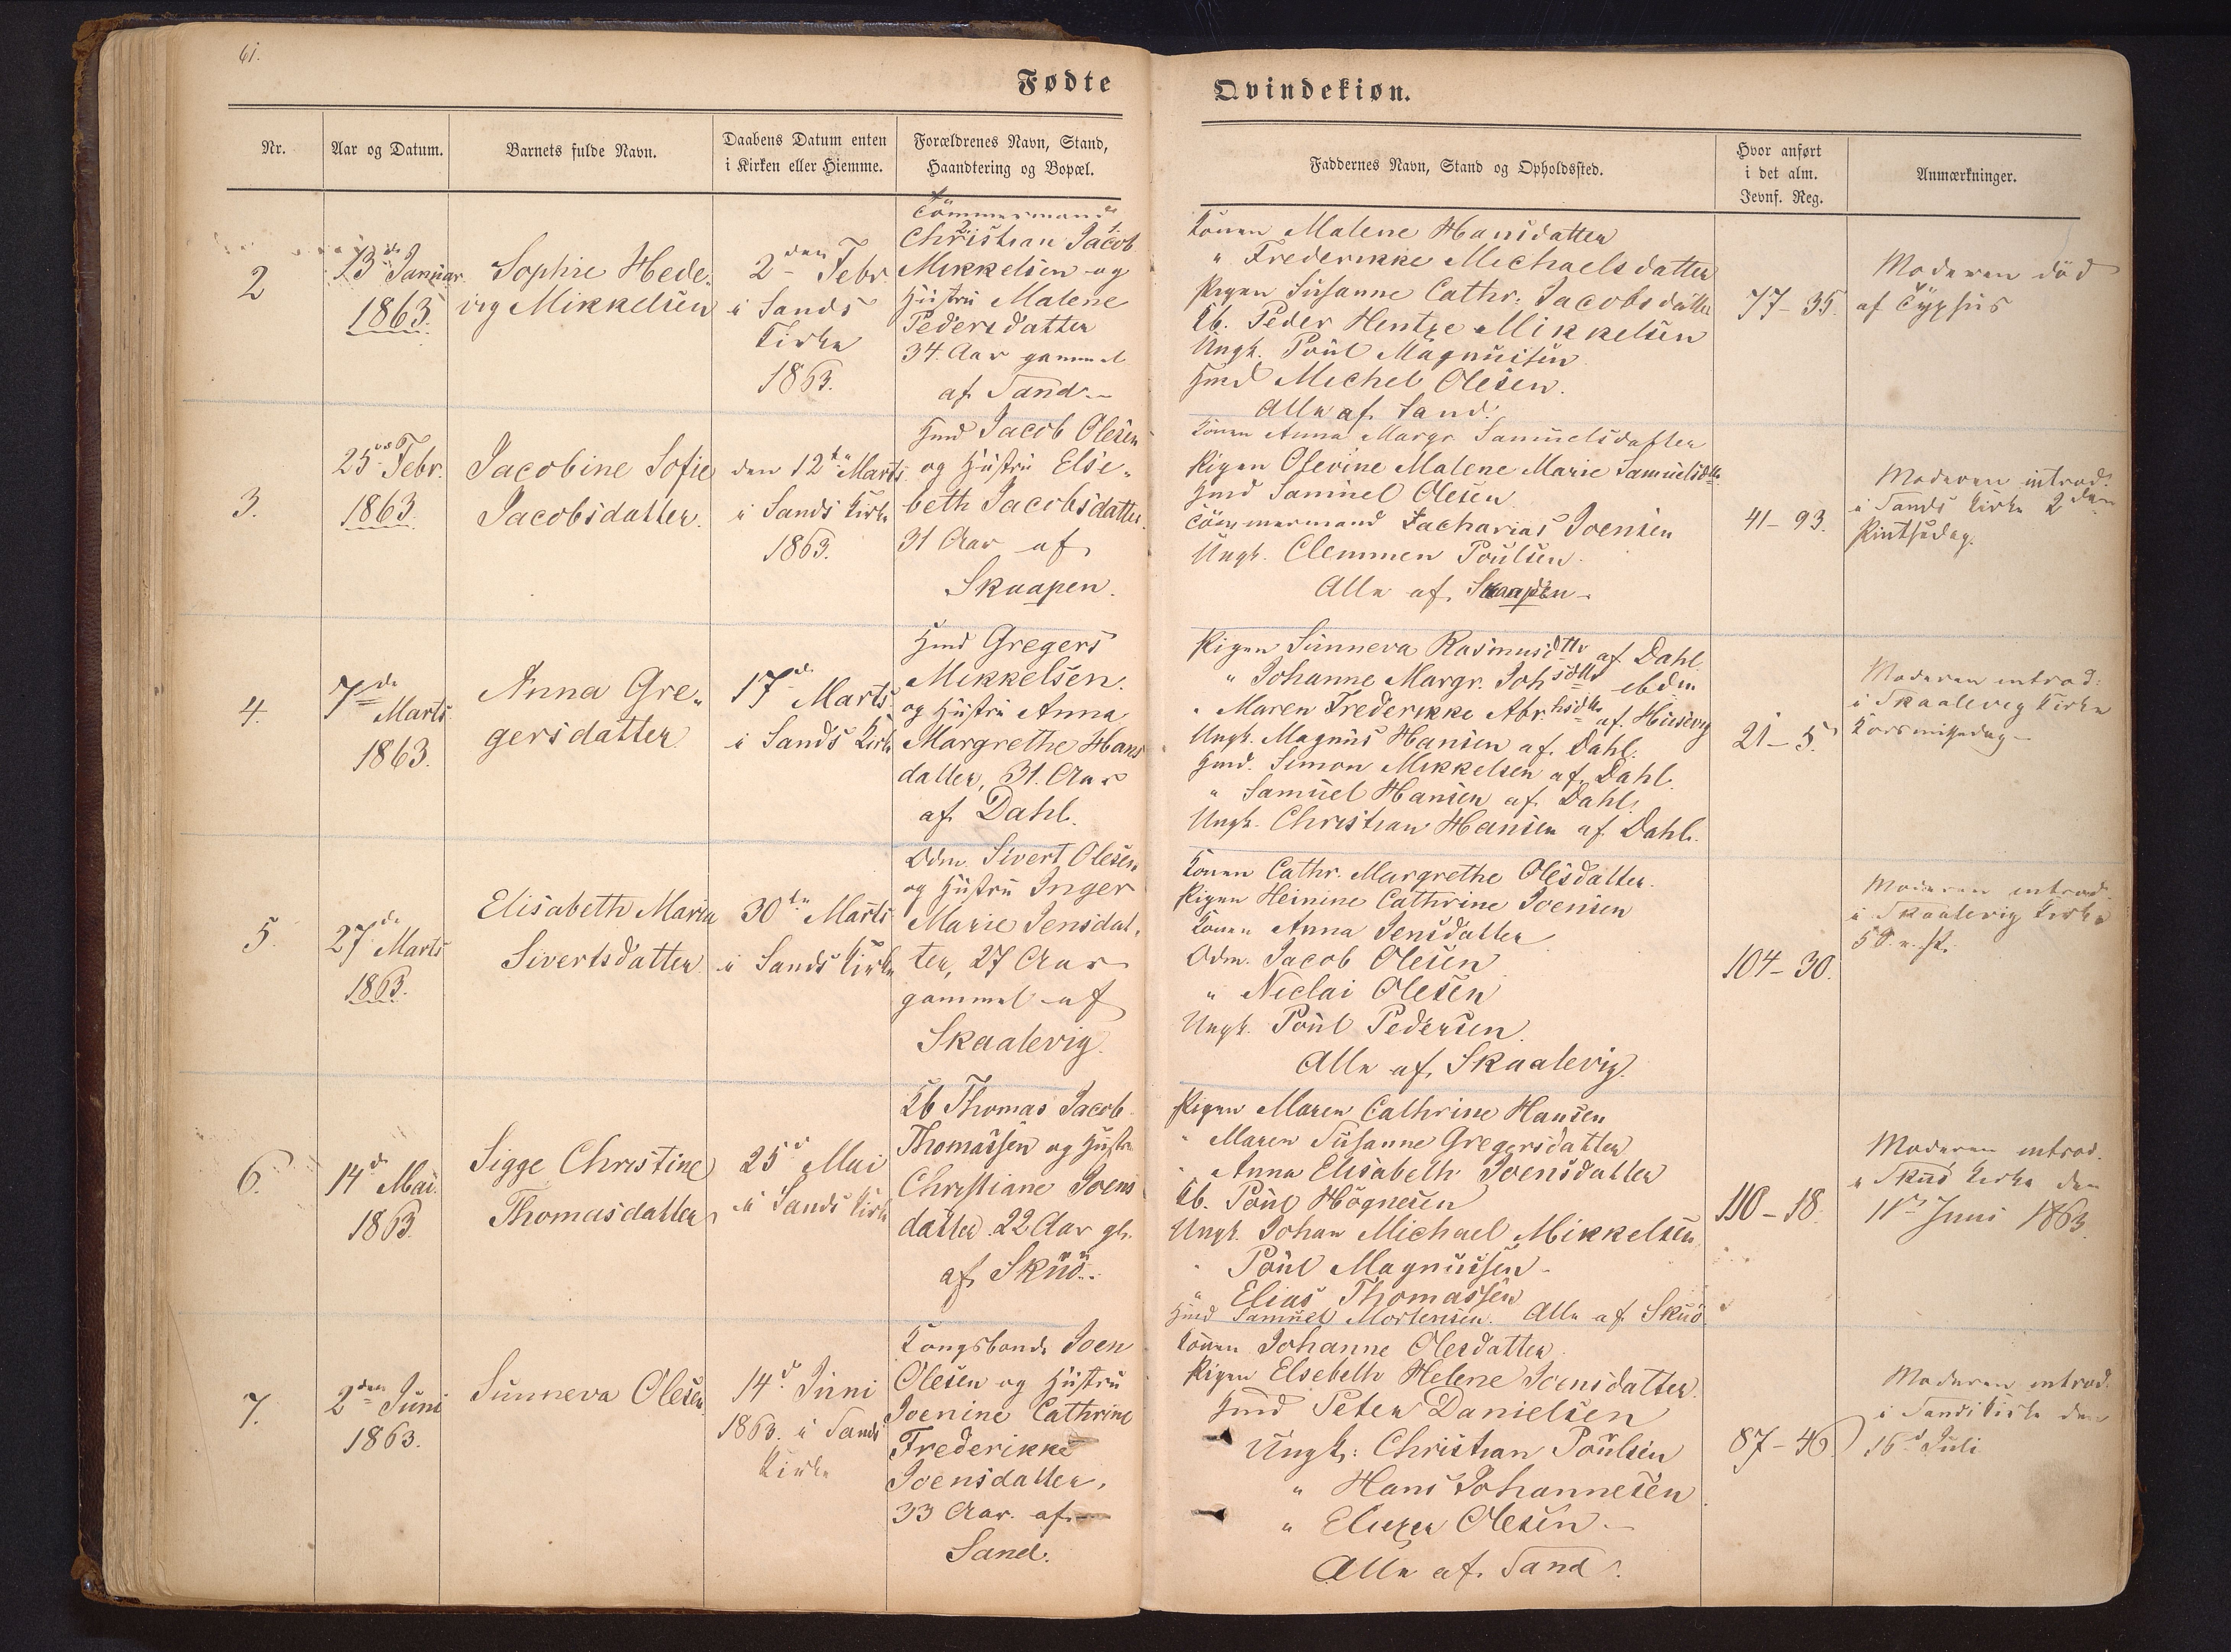 61.
Fødte
Qvindekiøn.
Nr.
Aar og Datum.
Barnets fulde Navn.
Daabens Datum enten
i Kirken eller Hiemme.
Forældrenes Navn, Stand,
Haandtering og Bopæl.
Faddernes Navn, Stand og Opholdssted.
Hvor anført
i det alm.
Jevnf. Reg.
Anmærkninger.
2
23de Januar
1863.
Sophie Hede-
vig Mikkelsen
2den Febr
i Sands
Kirke
1863.
Tömmermand
Christian Jacob
Mikkelsen og
Hustru Malene
Pedersdatter
34 Aar gammel
af Sand.
Konen Malene Hansdatter
" Frederikke Michaelsdatter
Pigen Susanne Cathr. Jacobsdatter
Kb. Peder Hentze Mikkelsen
Ungk. Poul Magnussen
Hmd Michel Olesen.
Alle af Sand.
77-35.
Moderen död
af Typhus
3.
25de Febr.
1863.
Jacobine Sofie
Jacobsdatter.
den 12te Marts
i Sands Kirke
1863.
Hmd Jacob Olesen
og Hustru Else-
beth Jacobsdatter.
31 Aar af
Skaapen.
Konen Anna Margr. Samuelsdatter
Pigen Olevine Malene Marie Samuelsdtr
Hmd Samuel Olesen
Tömmermand Zacharias Joensen
Ungk. Clemmen Poulsen.
Alle af Skaapen
41-93.
Moderen introd.
i Sands Kirke 2den
Pintsedag.
4.
7de Marts
1863.
Anna Gre-
gersdatter
17d Marts
i Sands Kirke
Hmd Gregers
Mikkelsen.
og Hustru Anna
Margrethe Hans
datter, 31. Aar
af Dahl.
Pigen Sunneva Rasmusdttr af Dahl.
" Johanne Margr. Johsdttr ibdm
" Maren Frederikke Abr.hsdttr af Husevig
Ungk. Magnus Hansen af Dahl.
Hmd. Simon Mikkelsen af Dahl.
" Samuel Hansen af Dahl.
Ungk. Christian Hansen af Dahl.
21-5.
Moderen introd.
i Skaalevig Kirke
Korsmissedag
5.
27de Marts
1863.
Elisabeth Maria
Sivertsdatter
30te Marts
i Sands Kirke
Odm. Sivert Olesen,
og Hustru Inger
Marie Jensdat-
ter, 27 Aar
gammel af
Skaalevig.
Konen Cathr. Margrethe Olesdatter.
Pigen Heinine Cathrine Joensen
Konen Anna Jensdatter
Odm. Jacob Olesen
" Niclai Olesen
Ungk. Poul Pedersen.
Alle af Skaalevig.
104-30.
Moderen introd.
i Skaalevig Kirke
5 S. e. P.
6.
14d Mai.
1863.
Sigge Christine
Thomasdatter
25d Mai
i Sands Kirke
Kb Thomas Jacob
Thomassen og Hustru
Christiane Joens
datter 22 Aar gl.
af Skuö.
Pigen Maren Cathrine Hansen
" Maren Susanne Gregersdatter
" Anna Elisabeth Joensdatter
Kb. Poul Högnesen
Ungk. Johan Michael Mikkelsen
" Poul Magnussen
" Elias Thomassen
Hmd Samuel Mortensen. Alle af Skuö
110-18.
Moderen introd.
i Skuö Kirke den
11te Juni 1863.
7.
2den Juni
1863.
Sunneva Olesen
14d Juni
1863. i Sands
Kirke
Kongsbonde Joen
Olesen og Hustru
Joenine Cathrine
Frederikke
Joensdatter,
33 Aar. af
Sand.
Konen Johanne Olesdatter.
Pigen Elsebeth Helene Joensdatter.
Hmd Peter Danielsen
Ungk: Christian Poulsen
" Hans Johannesen
" Eliezer Olesen
Alle af Sand.
87-46
Moderen introd.
i Sands Kirke den
16d Juli